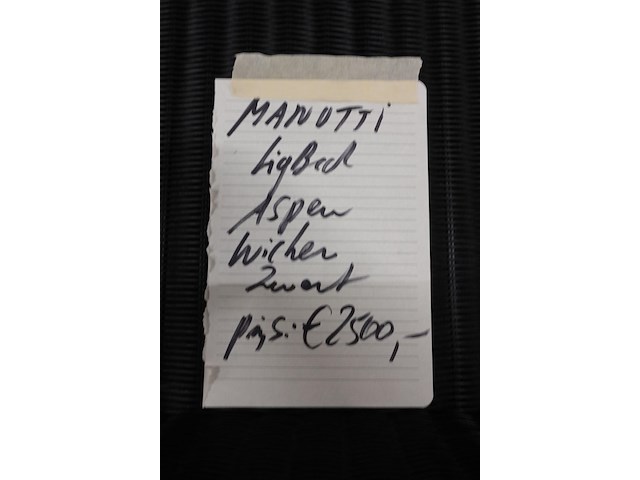 MANUTTI
LigBed
Aspen
Wicker
Zwart
prijs: € 2500,-